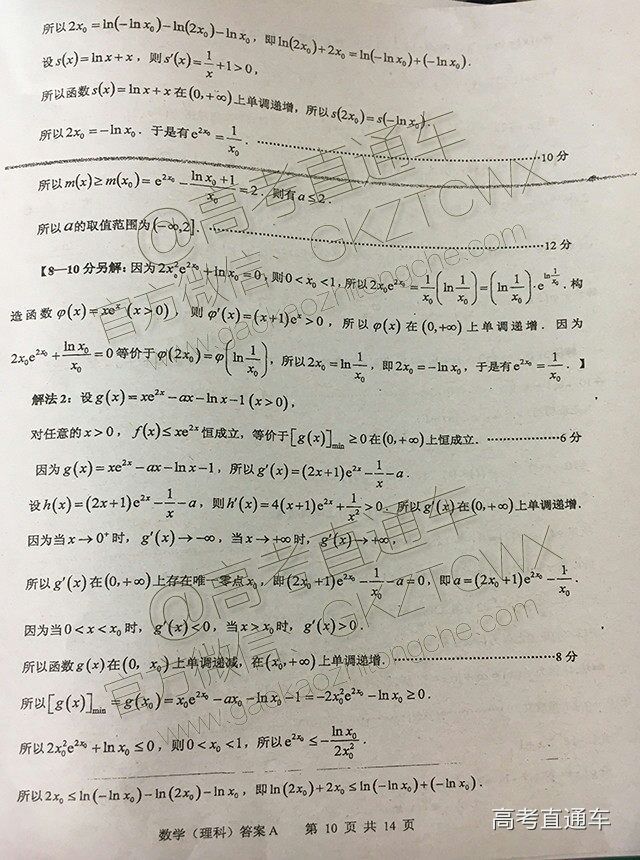 所以2x₀=ln(-ln x₀)-ln(2x₀)-ln x₀，即ln(2x₀)+2x₀=ln(-ln x₀)+(-ln x₀).
设s(x)=ln x+x，则s′(x)=1/x+1>0，
所以函数s(x)=ln x+x在(0,+∞)上单调递增，所以s(2x₀)=s(-ln x₀).
所以2x₀=-ln x₀．于是有e^(2x₀)=1/x₀．……………10分
所以m(x)≥m(x₀)=e^(2x₀)-(ln x₀+1)/x₀=2．则有a≤2．
所以a的取值范围为(-∞,2]．……………12分
【8—10分另解：因为2x₀²e^(2x₀)+ln x₀=0，则0<x₀<1，所以2x₀e^(2x₀)=1/x₀(ln 1/x₀)=(ln 1/x₀)·e^(ln 1/x₀)．构
造函数φ(x)=xeˣ(x>0)，则φ′(x)=(x+1)eˣ>0，所以φ(x)在(0,+∞)上单调递增．因为
2x₀e^(2x₀)+ln x₀/x₀=0等价于φ(2x₀)=φ(ln 1/x₀)，所以2x₀=ln 1/x₀，即2x₀=-ln x₀，于是有e^(2x₀)=1/x₀．】
解法2：设g(x)=xe^(2x)-ax-ln x-1(x>0)，
对任意的x>0，f(x)≤xe^(2x)恒成立，等价于[g(x)]min≥0在(0,+∞)上恒成立．……………6分
因为g(x)=xe^(2x)-ax-ln x-1，所以g′(x)=(2x+1)e^(2x)-1/x-a．
设h(x)=(2x+1)e^(2x)-1/x-a，则h′(x)=4(x+1)e^(2x)+1/x²>0．所以g′(x)在(0,+∞)上单调递增．
因为当x→0⁺时，g′(x)→-∞，当x→+∞时，g′(x)→+∞，
所以g′(x)在(0,+∞)上存在唯一零点x₀，即(2x₀+1)e^(2x₀)-1/x₀-a=0，即a=(2x₀+1)e^(2x₀)-1/x₀．
因为当0<x<x₀时，g′(x)<0，当x>x₀时，g′(x)>0．
所以函数g(x)在(0, x₀)上单调递减，在(x₀,+∞)上单调递增．……………8分
所以[g(x)]min=g(x₀)=x₀e^(2x₀)-ax₀-ln x₀-1=-2x₀²e^(2x₀)-ln x₀≥0．
所以2x₀²e^(2x₀)+ln x₀≤0，则0<x₀<1，所以e^(2x₀)≤-ln x₀/2x₀²．
所以2x₀≤ln(-ln x₀)-ln(2x₀)-ln x₀，即ln(2x₀)+2x₀≤ln(-ln x₀)+(-ln x₀)．
数学（理科）答案A 第 10 页 共 14 页
@高考直通车
官方微信：GKZTCWX
www.gaokaozhitongche.com
@高考直通车
官方微信：GKZTCWX
www.gaokaozhitongche.com
高考直通车